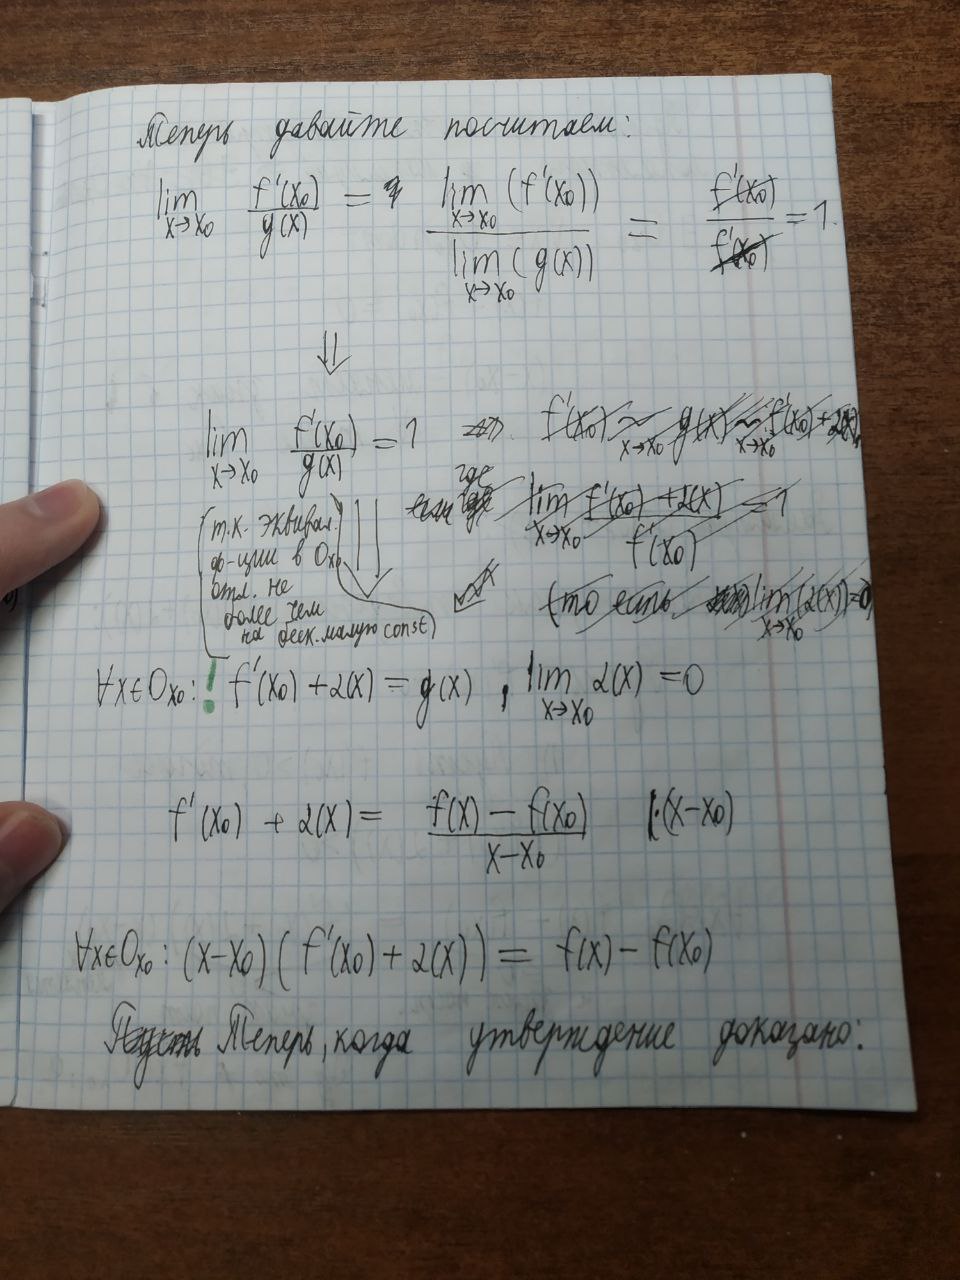 Теперь давайте посчитаем:
lim x→x₀ f'(x₀)/g(x) = lim x→x₀ (f'(x₀)) / lim x→x₀ (g(x)) = f'(x₀)/f'(x₀) = 1.
⇓
lim x→x₀ f'(x₀)/g(x) = 1 f'(x₀) ~ x→x₀ g(x) ~ x→x₀ f'(x₀) + 2(x),
где lim x→x₀ f'(x₀) + 2(x) / f'(x₀) = 1
(то есть lim x→x₀ (2(x)) = 0
(т.к. эквивал.
ф-ции в Ox₀
отл. не
более чем
на беск. малую const)
∀x∈Ox₀: ! f'(x₀) + 2(x) = g(x), lim x→x₀ 2(x) = 0
f'(x₀) + 2(x) = f(x) − f(x₀) / x−x₀ |·(x−x₀)
∀x∈Ox₀: (x−x₀)(f'(x₀) + 2(x)) = f(x) − f(x₀)
Пусть Теперь, когда утверждение доказано: